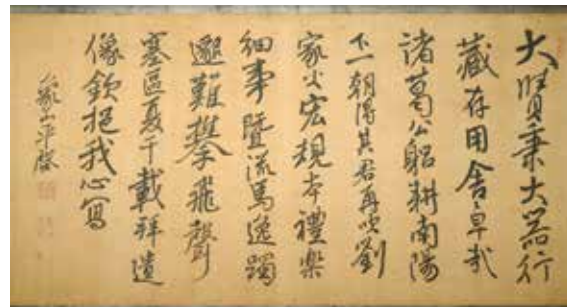 大賢秉大器行
藏存用舍卓哉
諸葛公躳耕南陽
下一朝得其君再吹劉
家火宏規本禮樂
細事暨流馬逸躅
邈難攀飛聲
塞區夏千載拜遺
像欽挹我心寫
象山平啓